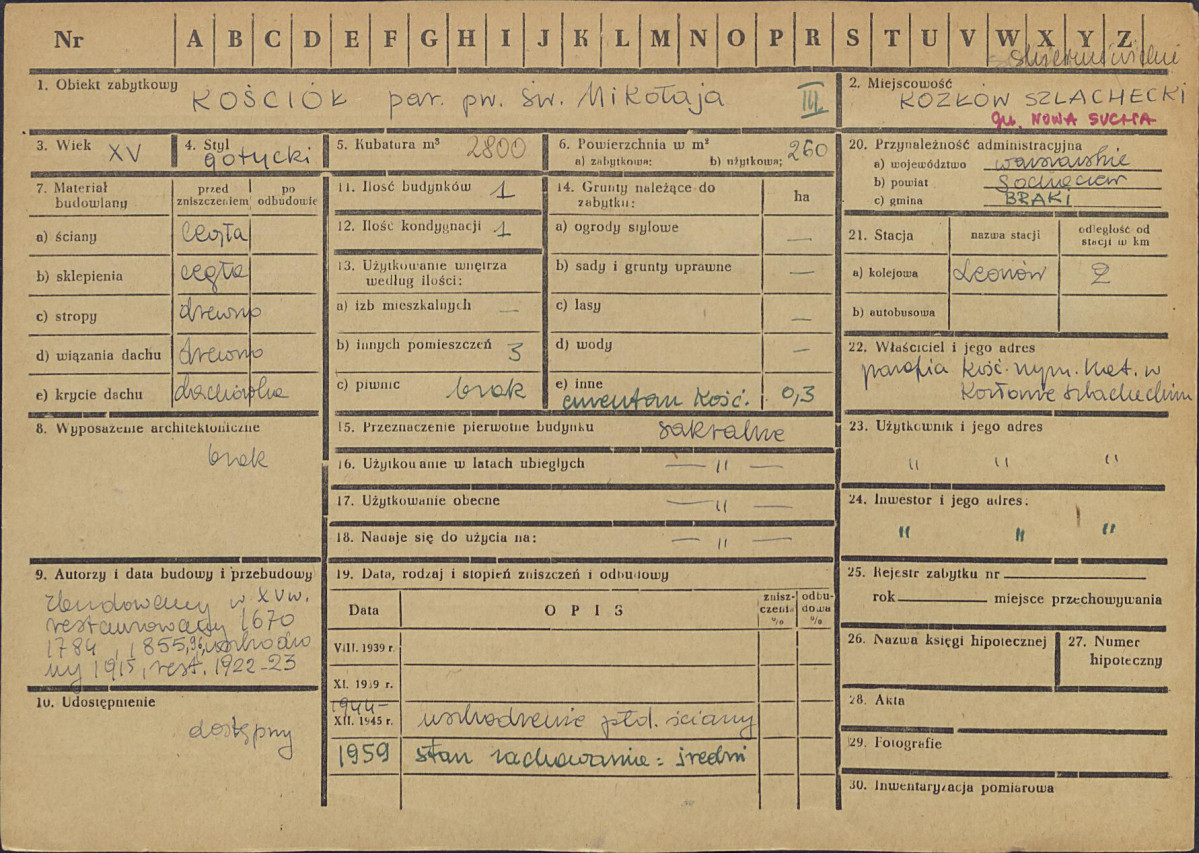 Nr A B C D E F G H I J K L M N O P R S T U V W X Y Z
skierniewickie
1. Obiekt zabytkowy KOŚCIÓŁ par. pw. św. Mikołaja III
2. Miejscowość KOZŁÓW SZLACHECKI
gm. NOWA SUCHA
3. Wiek XV
4. Styl gotycki
5. Kubatura m³ 2800
6. Powierzchnia w m²
a) zabytkowa: b) użytkowa: 260
7. Materiał budowlany
przed zniszczeniem
po odbudowie
a) ściany cegła
b) sklepienia cegła
c) stropy drewno
d) wiązania dachu drewno
e) krycie dachu dachówka
8. Wyposażenie architektoniczne
brak
9. Autorzy i data budowy i przebudowy
zbudowany w XV w.
restaurowany 1670
1784, 1855,96, uszkodzo
ny 1915, rest. 1922-23
10. Udostępnienie
dostępny
11. Ilość budynków 1
12. Ilość kondygnacji 1
13. Użytkowanie wnętrza
według ilości:
a) izb mieszkalnych —
b) innych pomieszczeń 3
c) piwnic brak
14. Grunty należące do
zabytku: ha
a) ogrody stylowe —
b) sady i grunty uprawne —
c) lasy —
d) wody —
e) inne
cmentarz kość. 0,3
15. Przeznaczenie pierwotne budynku sakralne
16. Użytkowanie w latach ubiegłych — " —
17. Użytkowanie obecne — " —
18. Nadaje się do użycia na: — " —
19. Data, rodzaj i stopień zniszczeń i odbudowy
Data OPIS
znisz-
czenia
%
odbu-
dowa
%
VIII. 1939 r.
XI. 1939 r.
1944-
XII. 1945 r. uszkodzenie płd. ściany
1959 stan zachowania: średni
20. Przynależność administracyjna
a) województwo warszawskie
b) powiat Sochaczew
c) gmina BRAKI
21. Stacja nazwa stacji
odległość od
stacji w km
a) kolejowa Leonów 2
b) autobusowa
22. Właściciel i jego adres
parafia Kość. rzym. kat. w
Kozłowie szlacheckim
23. Użytkownik i jego adres
" " "
24. Inwestor i jego adres:
" " "
25. Rejestr zabytku nr
rok miejsce przechowywania
26. Nazwa księgi hipotecznej
27. Numer
hipoteczny
28. Akta
29. Fotografie
30. Inwentaryzacja pomiarowa